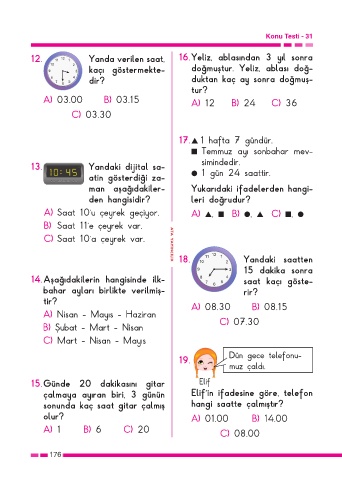 Konu Testi - 31
12. Yanda verilen saat,
kaçı göstermekte-
dir?
A) 03.00 B) 03.15
C) 03.30
13. Yandaki dijital sa-
atin gösterdiği za-
man aşağıdakiler-
den hangisidir?
10:45
A) Saat 10'u çeyrek geçiyor.
B) Saat 11'e çeyrek var.
C) Saat 10'a çeyrek var.
14. Aşağıdakilerin hangisinde ilk-
bahar ayları birlikte verilmiş-
tir?
A) Nisan - Mayıs - Haziran
B) Şubat - Mart - Nisan
C) Mart - Nisan - Mayıs
15. Günde 20 dakikasını gitar
çalmaya ayıran biri, 3 günün
sonunda kaç saat gitar çalmış
olur?
A) 1 B) 6 C) 20
16. Yeliz, ablasından 3 yıl sonra
doğmuştur. Yeliz, ablası doğ-
duktan kaç ay sonra doğmuş-
tur?
A) 12 B) 24 C) 36
17. ▲ 1 hafta 7 gündür.
■ Temmuz ayı sonbahar mev-
simindedir.
● 1 gün 24 saattir.
Yukarıdaki ifadelerden hangi-
leri doğrudur?
A) ▲, ■ B) ●, ▲ C) ■, ●
18. Yandaki saatten
15 dakika sonra
saat kaçı göste-
rir?
A) 08.30 B) 08.15
C) 07.30
19. Dün gece telefonu-
muz çaldı.
Elif
Elif'in ifadesine göre, telefon
hangi saatte çalmıştır?
A) 01.00 B) 14.00
C) 08.00
176